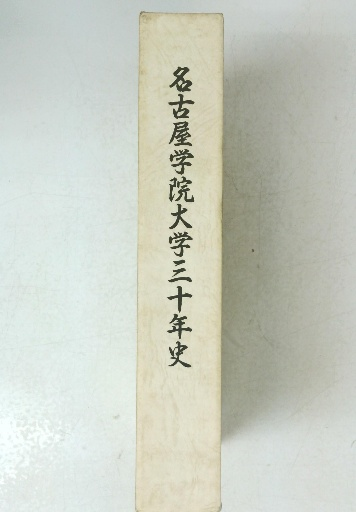 名古屋学院大学三十年史